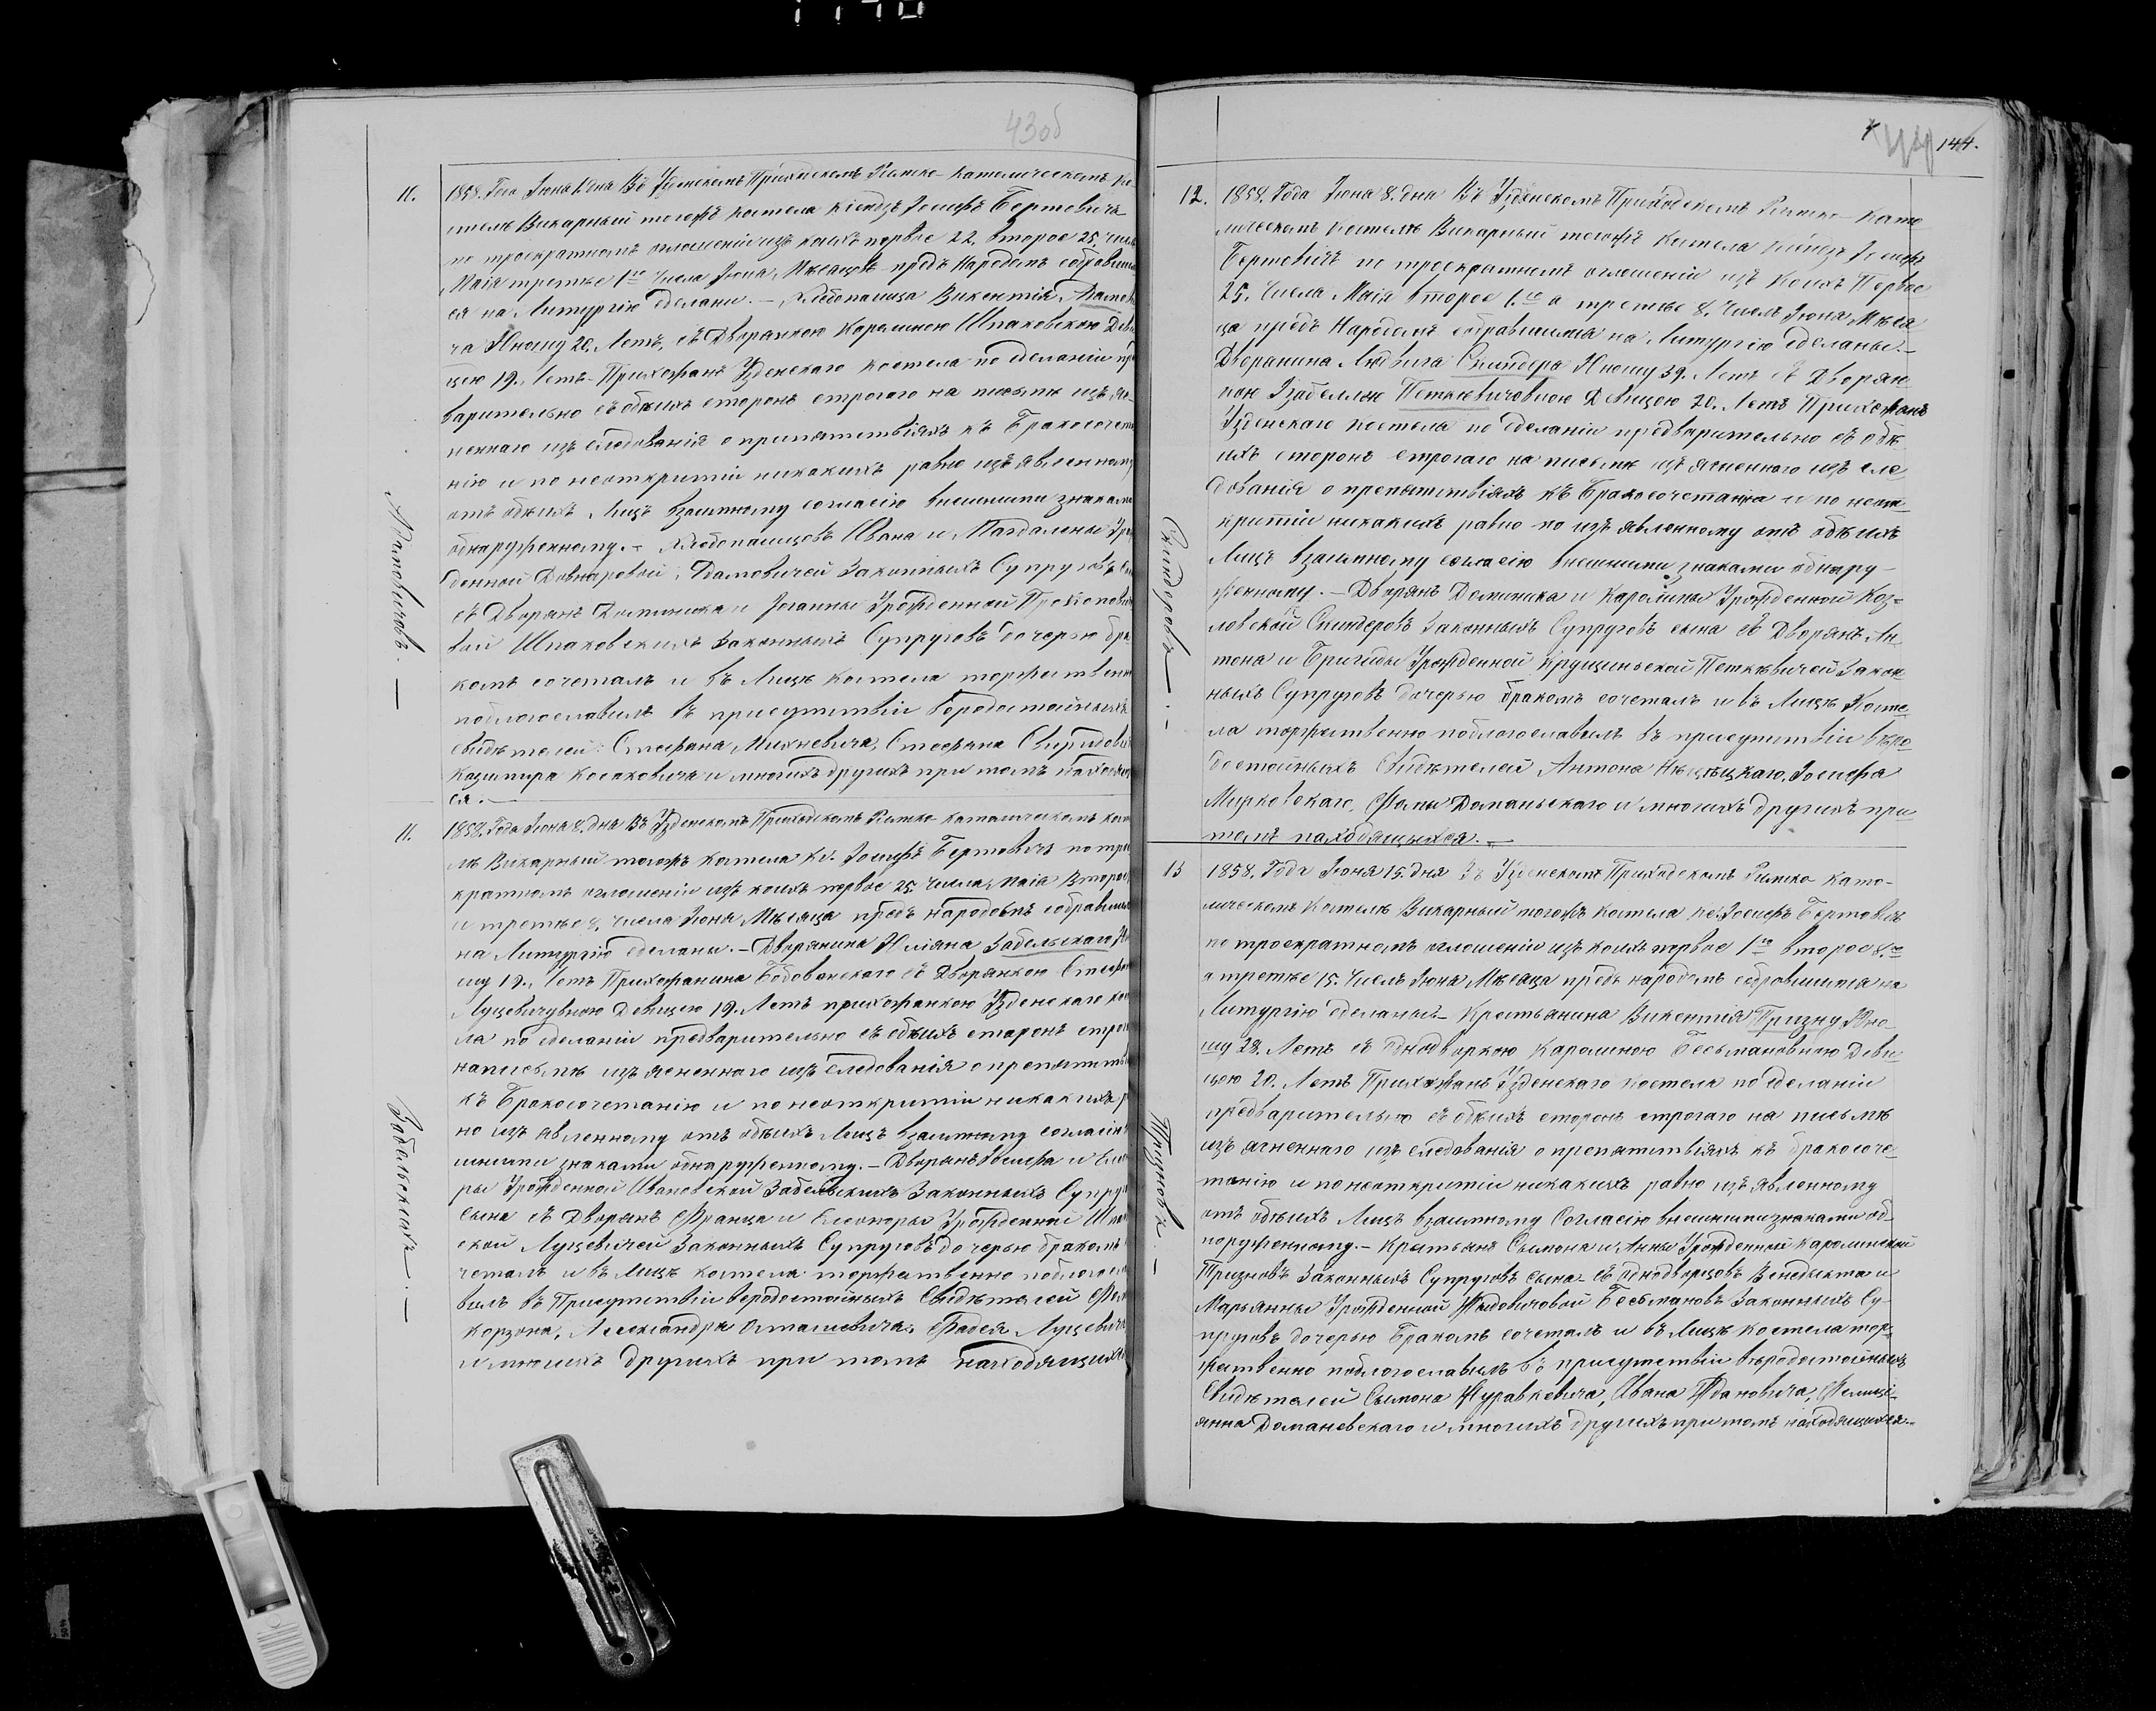 43об
11. 1858. Года Іюня 1 дня Въ Узденскомъ Приходскомъ Римско-Католическомъ Ко-
стелѣ Викарный тогожъ Костела Ксіендзъ Іосифъ Бертовичъ
по троекратномъ оглашеніи изъ коихъ первое 22. второе 25. числъ
Маія третье 1го Числа Іюня Мѣсяцевъ предъ Народомъ собравшим
ся на Литургію сделаны. – Хлебопашца Викентія Адамови
ча Юношу 20. Летъ, съ Дворянкою Каролиною Шпаковскою Деви
цею 19. Летъ Прихожанъ Узденскаго Костела по сделаніи пред
варительно съ обѣихъ сторонъ строгого на письмѣ изъяс-
неннаго изъ следованія о препятствіяхъ къ Бракосочета
нію и по неоткрытіи никакихъ равно изъявленному
отъ обѣихъ Лицъ взаимному согласію внешними знаками
обнаруженному. – Хлебопашцовъ Ивана и Магдалены Урож
денной Довнаровой, Адамовичей Законныхъ Супруговъ сы
съ Дворянъ Доминика и Іоанны Урожденной Прокопович
вой Шпаковскихъ Законныхъ Супруговъ дочерью бра
комъ сочеталъ и въ Лицѣ Костела торжественно
поблогославилъ въ присутствіи веродостойныхъ
свидѣтелей: Стефана Михневича, Стефана Свиридови
Казимира Косаковича и многихъ другихъ при томъ находящ
ся. –
Адамовичовъ. –
11. 1858. Года Іюня 8. дня Въ Узденскомъ Приходскомъ Римско-Католическомъ Кост
лѣ Викарный тогожъ Костела Кс. Іосифъ Бертовичъ по тро
кратномъ оглашеніи изъ коихъ первое 25 Числа Маія Второе
и третье 8. числа Іюня Мѣсяца предъ народомъ собравшим
на Литургію сделаны. – Дворянина Юліяна Забельскаго Юно
шу 19. Летъ Прихожанина съ Дворянкою Стефан
Луцевичувною Девицею 19. Летъ прихожанкою Узденскаго кос
ла по сделаніи предварительно съ обѣихъ сторонъ строг
написьмѣ изъясненного изъ следованія о препятств
къ Бракосочетанію и по неоткрытіи никакихъ р
но изъявленному отъ обѣихъ Лицъ взаимному согласію
шними знаками обнаруженному. – Дворянъ Іосифа и Елео
ры Урожденной Ивановской Забельскихъ Законныхъ Супру
Сына съ Дворянъ Франца и Елеоноры Урожденной Шпа
ской Луцевичей Законныхъ Супруговъ дочерью бракомъ
четалъ и въ Лицѣ Костела торжественно поблогосла
вилъ въ Присутствіи веродостойныхъ Свидѣтелей
Корзона, Александра Осташевича, Фадея Луцевича
и многихъ другихъ при томъ находящихся
Забельскихъ. –
144.
12. 1858. Года Іюня 8. дня Въ Узденскомъ Приходскомъ Римско-Като
лическомъ Костелѣ Викарный тогожъ Костела Ксіендзъ Іосифъ
Бертовичъ по троекратномъ оглашеніи изъ коихъ Первое
25. Числа Маія второе 1.го а третье 8. Числъ Іюня Мѣся
ца предъ Народомъ собравшимся на Литургію сделаны. –
Дворянина Людвига Скиндера Юношу 39. Летъ съ Дворян
кою Изабеллею Петкѣвичовною Девицею 20. Летъ Прихожанъ
Узденскаго Костела по сделаніи предварительно съ обѣ
ихъ сторонъ строгаго на письмѣ изъясненного изъ сле
дованія о препятствіяхъ къ Бракосочетанія и по неот
крытіи никакихъ равно по изъявленному отъ обѣихъ
Лицъ взаимному согласію внешними знаками обнару-
женному. – Дворянъ Доминика и Каролины Урожденной Коз-
ловской Скиндеровъ Законныхъ Супруговъ сына съ Дворянъ Ан
тона и Бригиды Урожденной Крущинской Петкѣвичей Закон
ныхъ Супруговъ дочерью бракомъ сочеталъ и въ Лицѣ Косте
ла торжественно поблогославилъ въ присутствіи вѣро
достойныхъ Свидѣтелей Антона Іосифа
Мирковскаго, Фомы Доманьскаго и многихъ другихъ при
томъ находящихся. –
Скиндеровъ. –
13 1858. Года Іюня 15. дня Въ Узденскомъ Приходскомъ Римско Като-
лическомъ Костелѣ Викарный тогожъ Костела Кс. Іосифъ Бертовичъ
по троекратномъ оглашеніи изъ коихъ первое 1го второе 8.го
а третье 15. Числъ Іюня Мѣсяца предъ народомъ собравшимся на
Литургію сделаны. – Крестьянина Викентія Тризну Юно-
шу 28. Летъ съ Однодворкою Каролиною Бесьмановною Деви
цою 20. Летъ Прихожанъ Узденскаго Костела по сделаніи
предварительно съ обѣихъ сторонъ строгаго на письмѣ
изъясненнаго изъ следованія о препятствіяхъ къ бракосоче
танію и по неоткрытіи никакихъ равно изъявленному
отъ обѣихъ Лицъ взаимному Согласію внешними знаками об-
наруженному. – Крестьянъ Сымона и Анны Урожденной Каролинской
Тризновъ Законныхъ Супруговъ сына – съ однодворцовъ Венедыкта и
Марьянны Урожденной Жидовичовой Бесьмановъ Законныхъ Су-
пруговъ дочерью Бракомъ сочеталъ и въ Лицѣ Костела тор-
жественно поблогославилъ въ присутствіи вѣродостойныхъ
Свидѣтелей Сымона Журавкевича, Ивана Ждановича, Фелици-
янна Доманевскаго и многихъ другихъ при томъ находящихся. –
Тризновъ. –